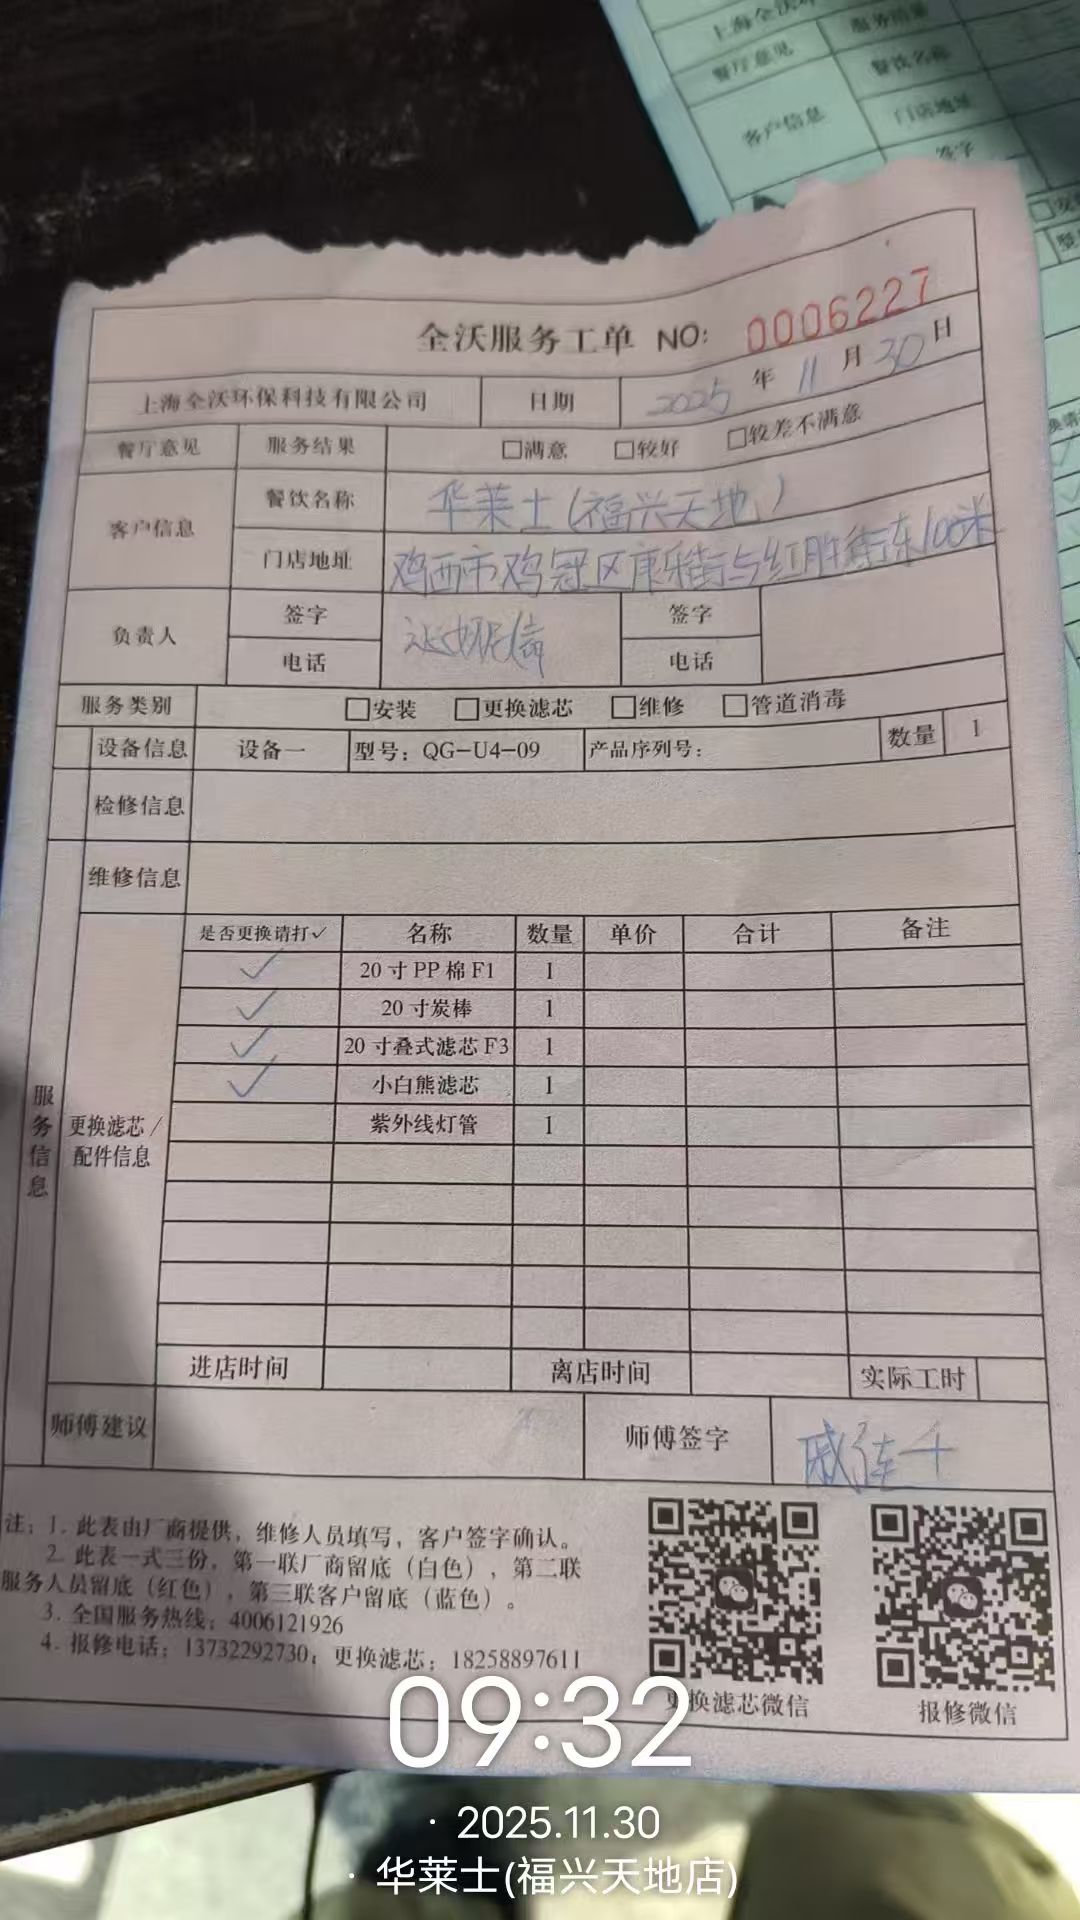 上海全沃环
服务结果
餐厅意见
餐饮名称
客户信息
门店地址
签字
全沃服务工单 NO: 0006227
上海全沃环保科技有限公司 日期 2025 年 11 月 30 日
餐厅意见 服务结果 □满意 □较好 □较差不满意
客户信息 餐饮名称 华莱士(福兴天地)
门店地址 鸡西市鸡冠区康乐街与红胜街东100米
负责人 签字 签字
电话 电话
服务类别 □安装 □更换滤芯 □维修 □管道消毒
设备信息 设备一 型号: QG-U4-09 产品序列号: 数量 1
检修信息
维修信息
是否更换请打✓ 名称 数量 单价 合计 备注
✓ 20寸PP棉F1 1
✓ 20寸炭棒 1
✓ 20寸叠式滤芯F3 1
✓ 小白熊滤芯 1
紫外线灯管 1
服务信息
更换滤芯/
配件信息
进店时间 离店时间 实际工时
师傅建议 师傅签字 戚佳
注: 1. 此表由厂商提供, 维修人员填写, 客户签字确认。
2. 此表一式三份, 第一联厂商留底(白色), 第二联
服务人员留底(红色), 第三联客户留底(蓝色)。
3. 全国服务热线: 4006121926
4. 报修电话: 13732292730; 更换滤芯: 18258897611
更换滤芯微信 报修微信
09:32
· 2025.11.30
· 华莱士(福兴天地店)